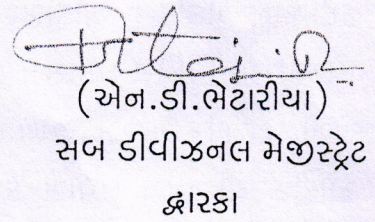 (એન.ડી.ભેટારીયા)
સબ ડીવીઝનલ મેજીસ્ટ્રેટ
દ્વારકા